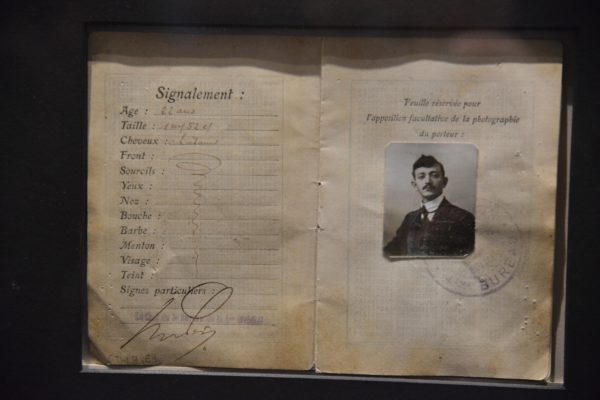 Signalement :
Age : 22 ans
Taille : 1m 52 c/
Cheveux : chatains
Front :
Sourcils :
Yeux :
Nez :
Bouche :
Barbe :
Menton :
Visage :
Teint :
Signes particuliers :
Feuille réservée pour
l'apposition facultative de la photographie
du porteur :
BURE